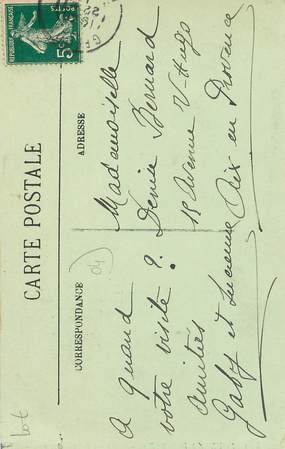 CARTE POSTALE
CORRESPONDANCE
ADRESSE
A quand
votre visite ?
amitiés
Gaby et Lucienne
Mademoiselle
Denise Bernard
18 Avenue V. Hugo
Aix en Provence
REPUBLIQUE FRANÇAISE
POSTES
5c
04
Lot